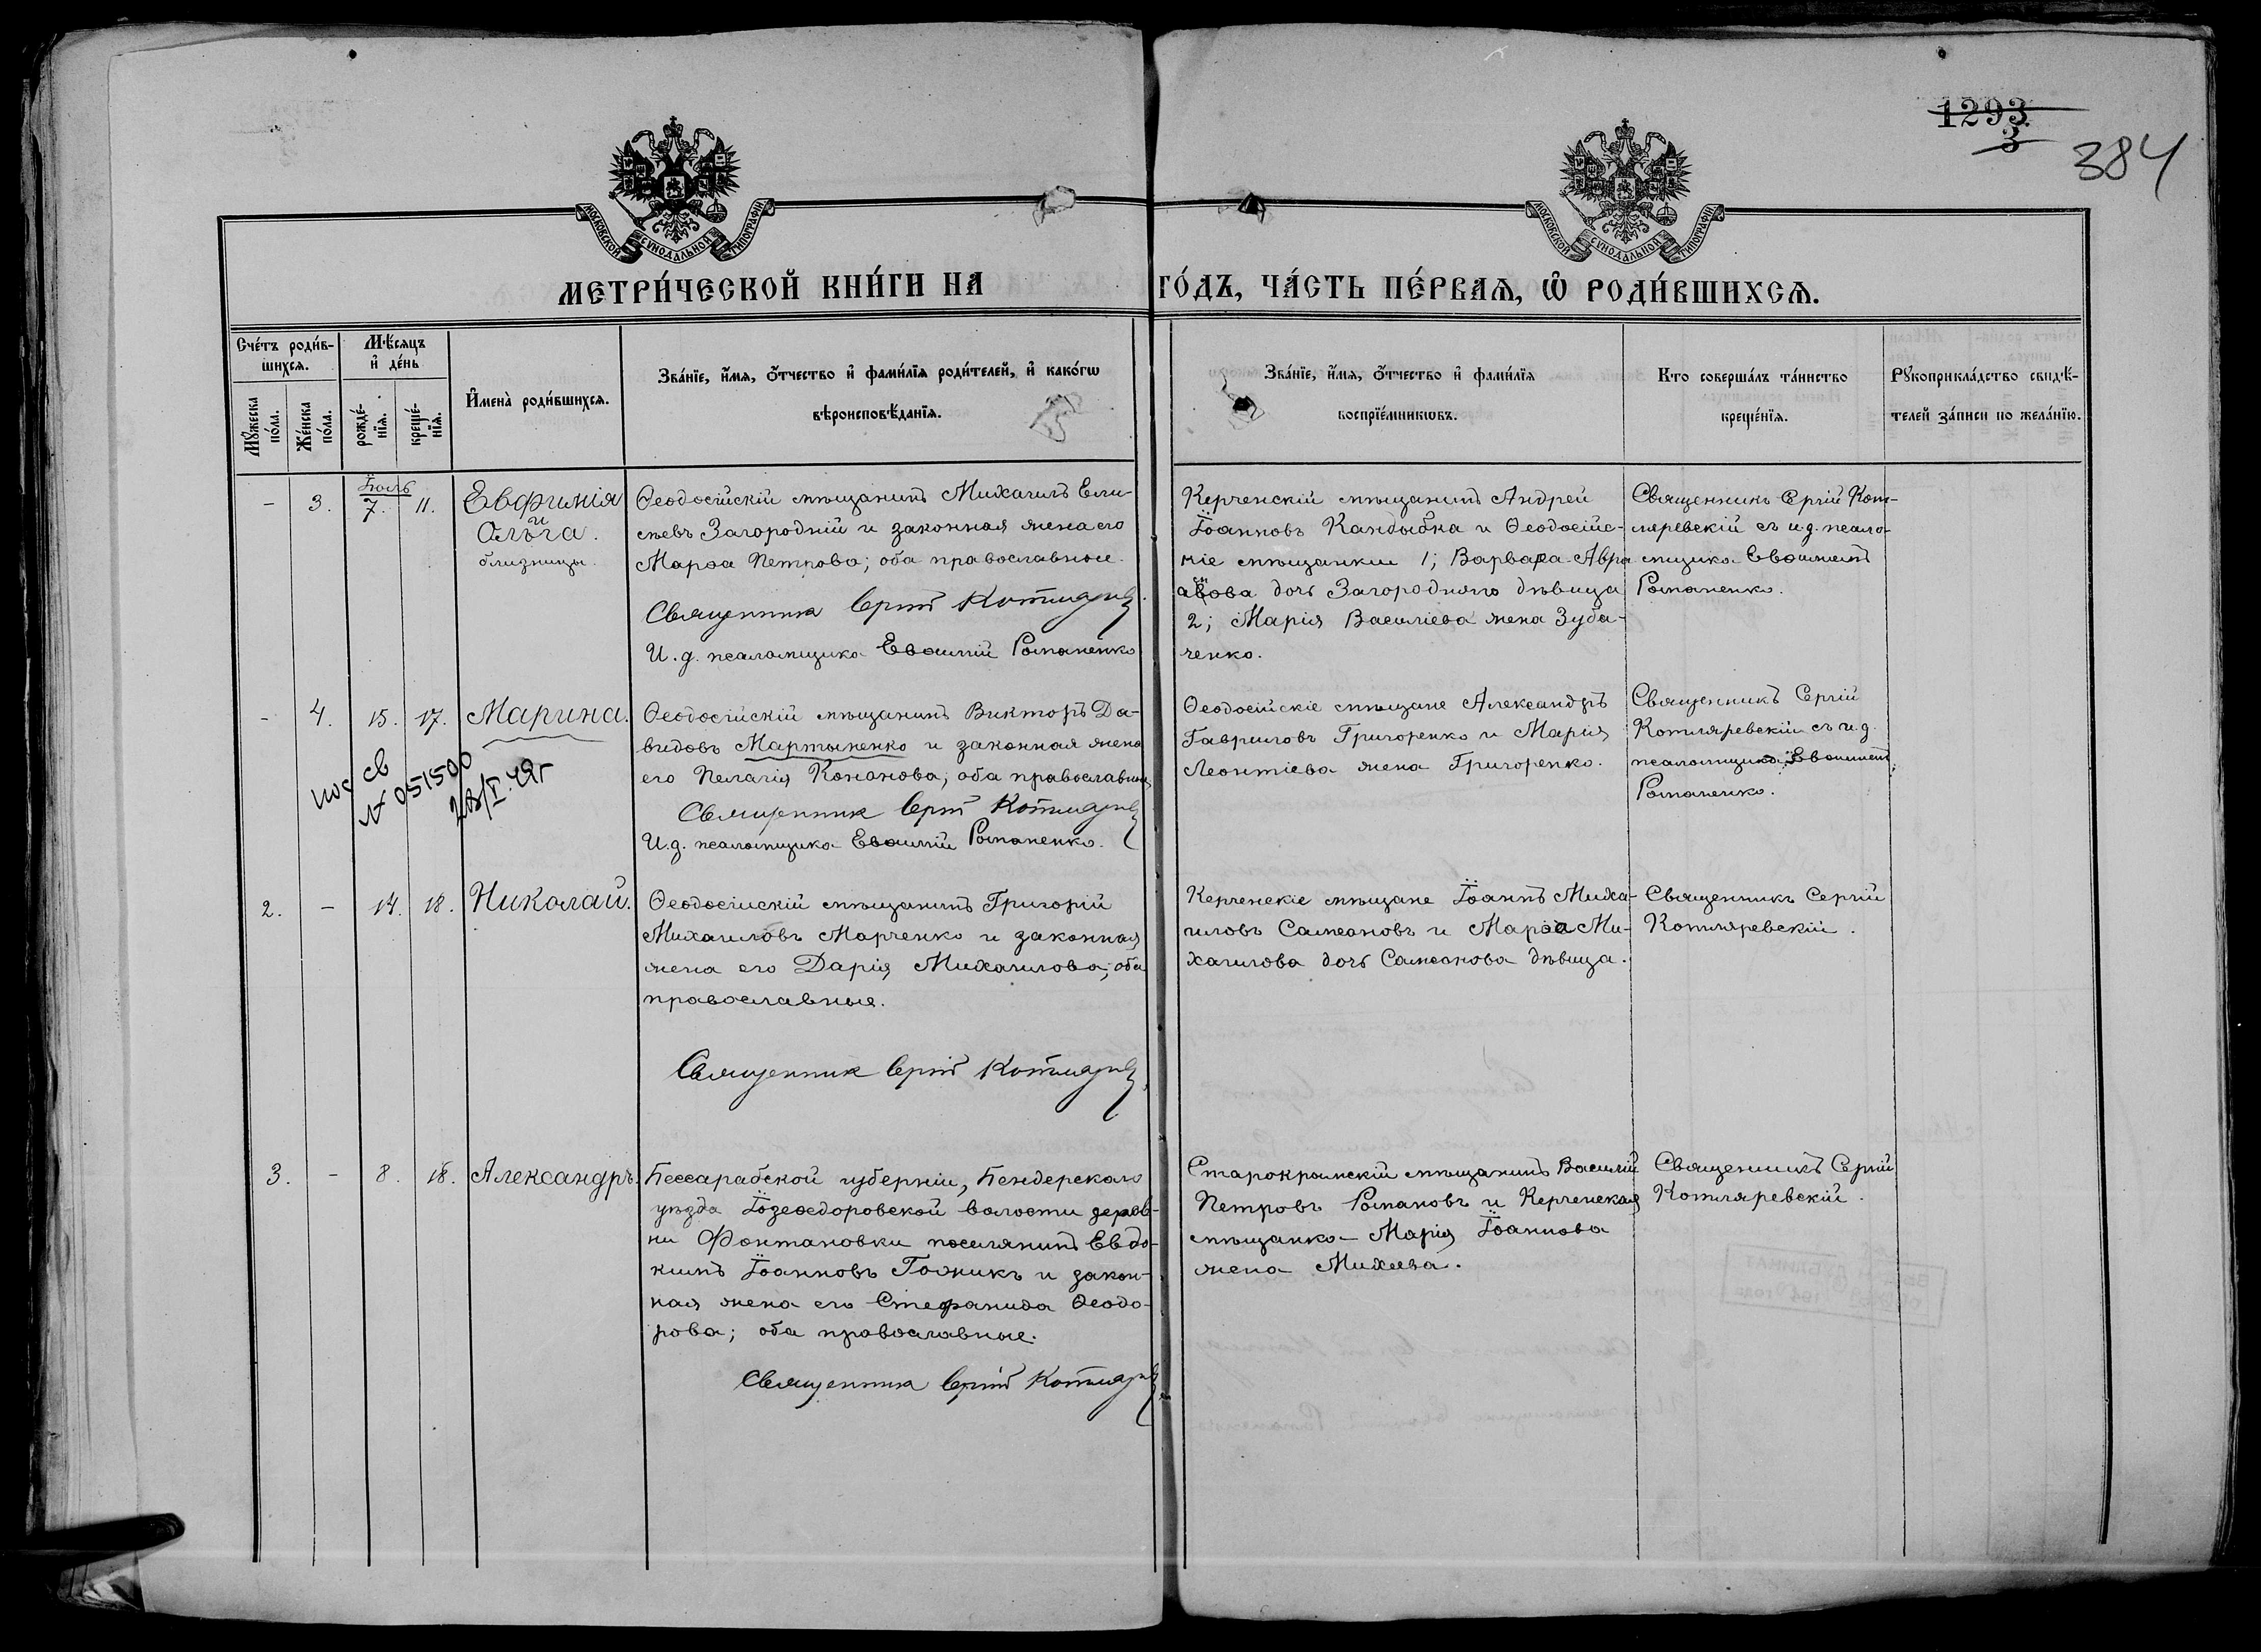 1293.
3
384
МОСКОВСКОЙ СѴНОДАЛЬНОЙ ТИПОГРАФІИ
МОСКОВСКОЙ СѴНОДАЛЬНОЙ ТИПОГРАФІИ
МЕТРИ́ЧЕСКОЙ КНИ́ГИ НА ГО́ДЪ, ЧА́СТЬ ПЕ́РВАѦ, Ѽ РОДИ́ВШИХСѦ.
Сче́тъ роди́в-
шихсѧ.
Мꙋ́жеска
по́ла.
Же́нска
по́ла.
Мѣ́сѧцъ
и҆ де́нь
рожде́-
нїѧ.
креще́-
нїѧ.
И҆мена̀ роди́вшихсѧ.
Зва́нїе, и҆́мѧ, ѻ҆́тчество и҆ фами́лїѧ роди́телей, и҆ како́гѡ
вѣроисповѣ́данїѧ.
Зва́нїе, и҆́мѧ, ѻ҆́тчество и҆ фами́лїѧ
воспрїе́мникѡвъ.
Кто соверша́лъ та́инство
креще́нїѧ.
Рꙋкоприкла́дство свидѣ́-
телей за́писи по жела́нїю.
- 3. Іюль 7. 11.
Евфимія
и
Ольга.
близницы.
Ѳеодосійскій мѣщанинъ Михаилъ Ели-
сѣевъ Загородній и законная жена его
Марѳа Петрова; оба православные.
Священникъ Сергій Котляревскій
И. д. псаломщика Евѳимій Романенко
Керченскій мѣщанинъ Андрей
Іоанновъ Кандыбка и Ѳеодосійс-
кіе мѣщанки 1; Варвара Авра
амова дочь Загородняго дѣвица
2; Марія Василіева жена Зуба-
ченко.
Священникъ Сергій Кот-
ляревскій съ и.д. псало-
мщика Евѳиміемъ
Романенко.
- 4. 15. 17. Марина.
Ѳеодосійскій мѣщанинъ Викторъ Да-
видовъ Мартыненко и законная жена
его Пелагія Кононова; оба православные
Священникъ Сергій Котляревскій
И.д. псаломщика Евѳимій Романенко.
св
№ 051500
28/I.49г
Ѳеодосійскіе мѣщане Александръ
Гавриловъ Григоренко и Марія
Леонтіева жена Григоренко.
Священникъ Сергій
Котляревскій съ и.д.
псаломщика Евѳиміемъ
Романенко.
2. - 14. 18. Николай.
Ѳеодосійскій мѣщанинъ Григорій
Михаиловъ Марченко и законная
жена его Дарія Михаилова; оба
православные.
Священникъ Сергій Котляревскій
Керченскіе мѣщане Іоаннъ Миха-
иловъ Самсоновъ и Марѳа Ми-
хаилова дочь Самсонова дѣвица.
Священникъ Сергій
Котляревскій.
3. - 8. 18. Александръ.
Бессарабской губерніи, Бендерскаго
уѣзда Іозеѳедоровской волости дерев-
ни Фонтановки поселянинъ Евдо-
кимъ Іоанновъ Гожикъ и закон-
ная жена его Стефанида Ѳеодо-
рова; оба православные.
Священникъ Сергій Котляревскій
Старокрымскій мѣщанинъ Василій
Петровъ Романовъ и Керченская
мѣщанка - Марія Іоаннова
жена Михеева.
Священникъ Сергій
Котляревскій.